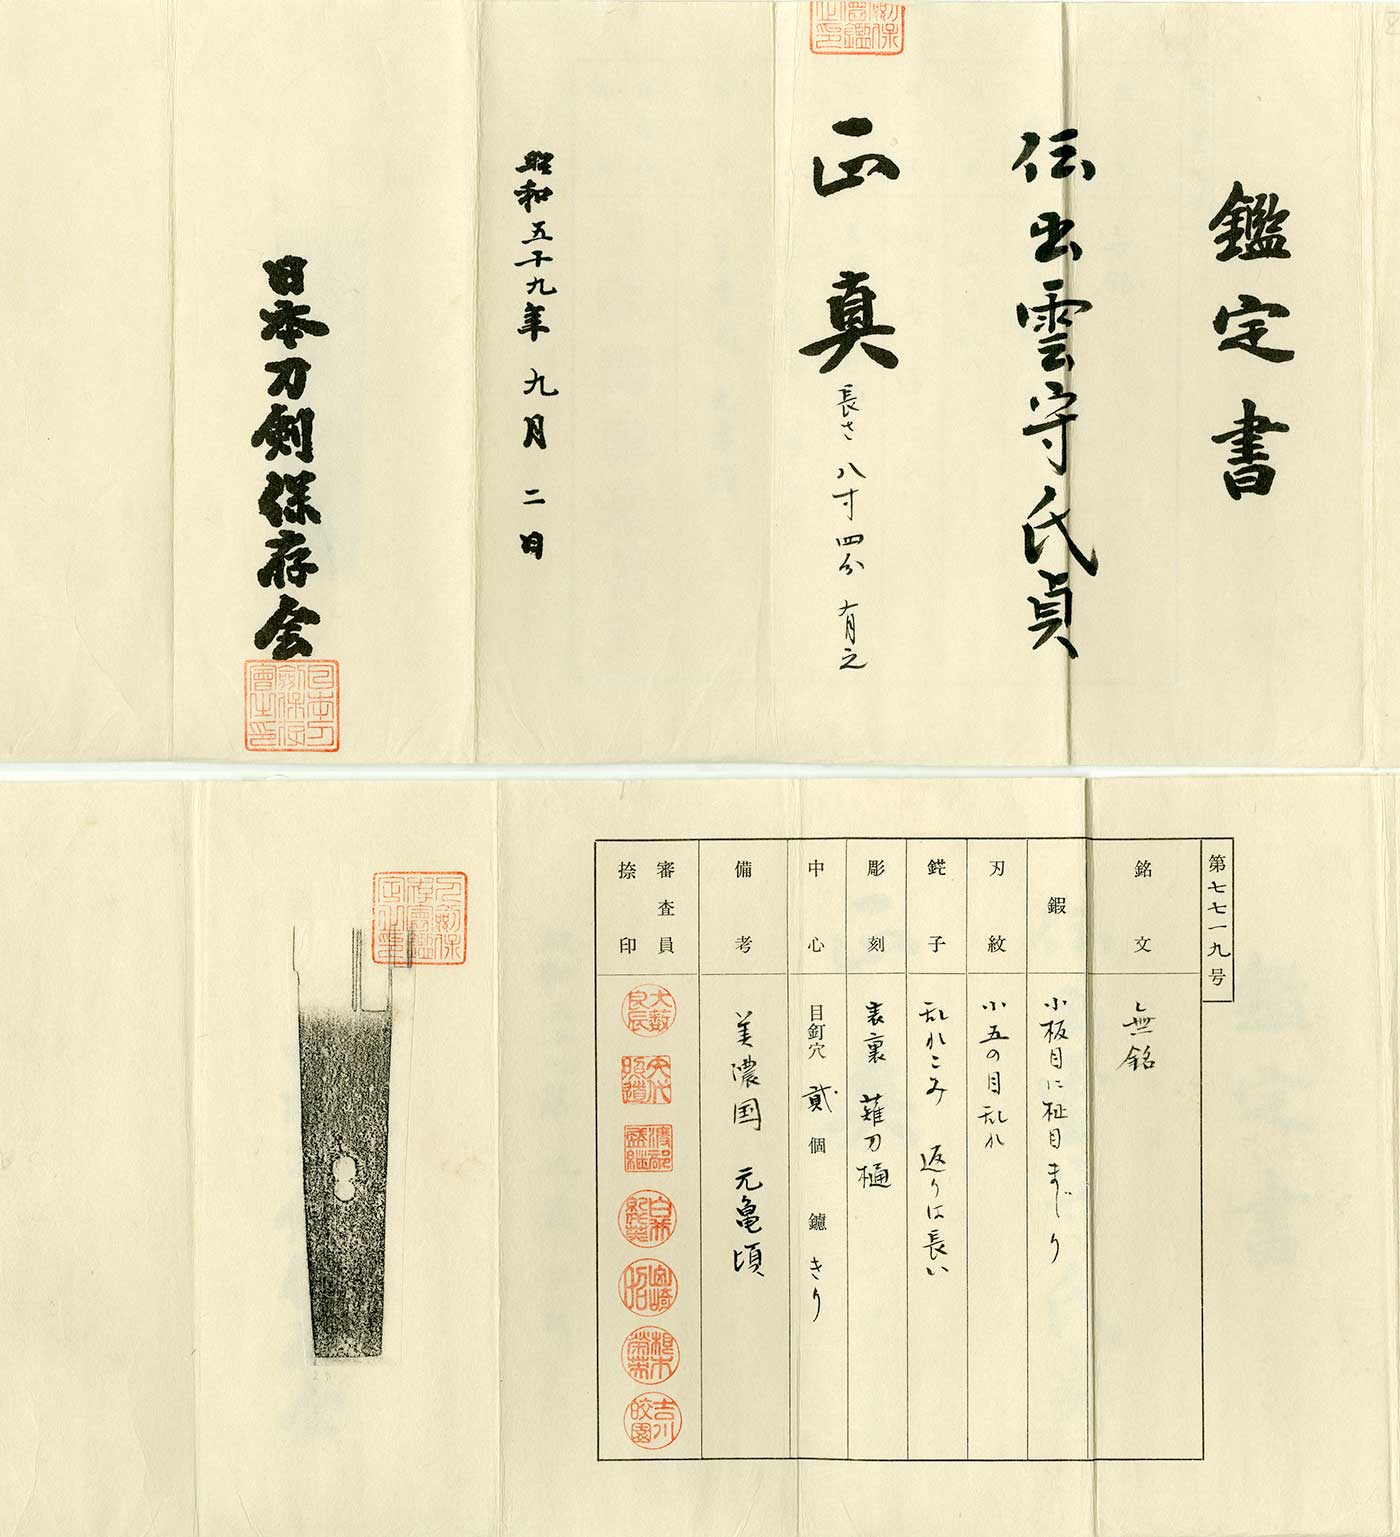 鑑定書
伝出雲守氏貞
正真
長さ 八寸四分 有之
昭和五十九年 九月 二日
日本刀剣保存会
第七七一九号
銘文
無銘
鍜
小板目に柾目まじり
刃紋
小五の目乱れ
鋩子
乱れこみ 返りは長い
彫刻
表裏 薙刀樋
中心
目釘穴 貳個 鑢 きり
備考
美濃国 元亀頃
審査員
捺印